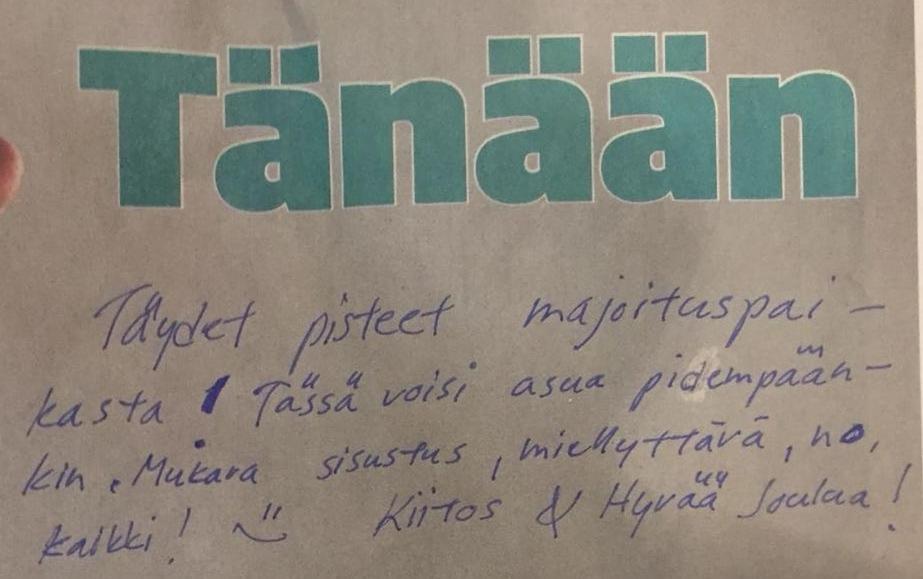 Tänään
Täydet pisteet majoituspai-
kasta! Tässä voisi asua pidempään-
kin. Mukava sisustus, miellyttävä, no,
kaikki! Kiitos & Hyvää Joulua!